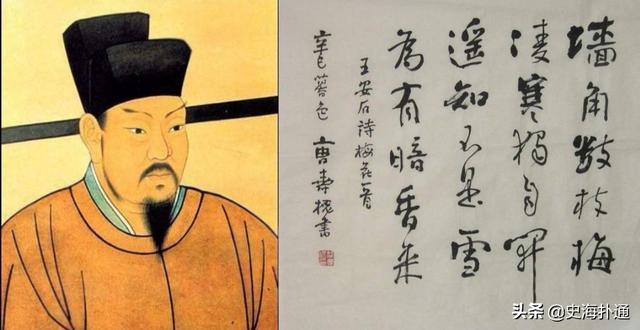 墙角数枝梅
凌寒独自开
遥知不是雪
为有暗香来
王安石诗梅花一首
辛巳暮色 唐寿
头条 @史海扑通